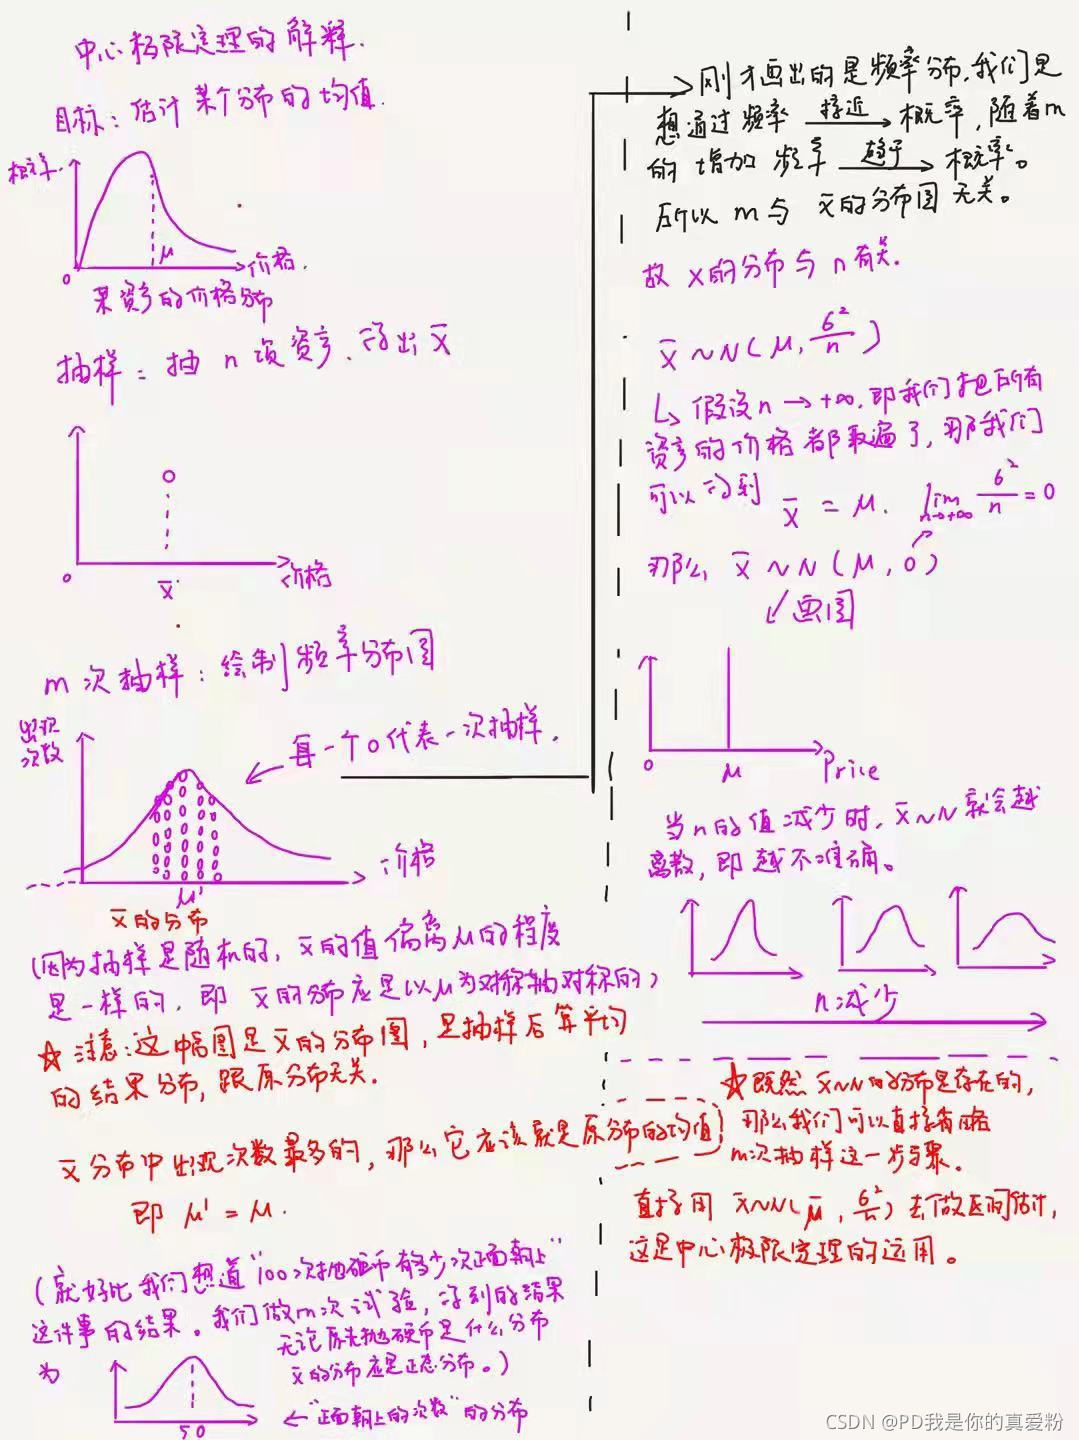 中心极限定理的解释.
目标：估计某个分布的均值.
概率.
μ
0
价格.
某资产的价格分布
抽样：抽 n 项资产、得出 x̄
0
x̄
价格
m 次抽样：绘制频率分布图
出现
次数
每一个o代表一次抽样.
价格
μ'
x̄的分布
(因为抽样是随机的，x̄的值偏离μ的程度
是一样的，即 x̄的分布应是以μ为对称轴对称的)
☆ 注意：这幅图是x̄的分布图，是抽样后算平均
的结果分布，跟原分布无关.
x̄分布中出现次数最多的，那么它应该就是原分布的均值!
即 μ' = μ.
(就好比我们想道“100次抛硬币有多少次正面朝上”
这件事的结果。我们做m次试验，得到的结果
为
无论原先抛硬币是什么分布
x̄的分布应是正态分布。)
50
←“正面朝上的次数”的分布
刚才画出的是频率分布，我们是
想通过频率 接近→ 概率，随着m
的增加 频率 趋于→ 概率。
所以 m 与 x̄的分布图无关。
故 x的分布与 n 有关.
x̄ ~ N ( μ, б²/n )
↳ 假设n → +∞. 即我们把所有
资产的价格都取遍了，那我们
可以得到 x̄ = μ. lim n→+∞ б²/n = 0
那么 x̄ ~ N ( μ , 0 )
↙ 画图
0
μ
Price
当n的值减少时，x̄~N 就会越
离散，即越不准确。
n减少
☆既然 x̄~N的分布是存在的，
那么我们可以直接省略
m次抽样这一步骤.
直接用 x̄~N( μ , б²/n ) 去做区间估计，
这是中心极限定理的运用。
CSDN @PD我是你的真爱粉